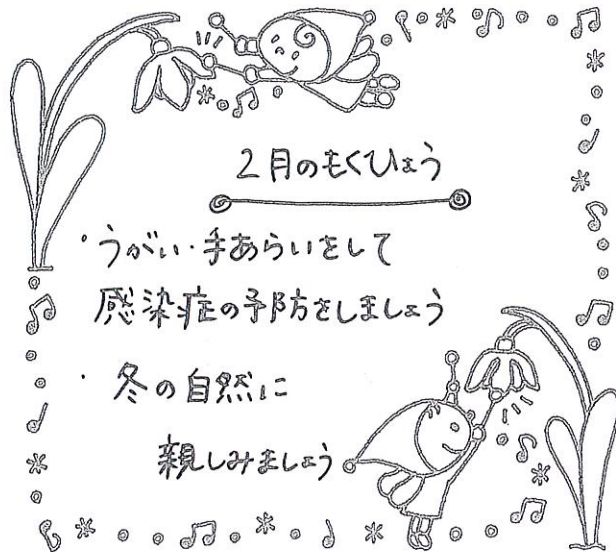 2月のもくひょう
・うがい・手あらいをして
感染症の予防をしましょう
・冬の自然に
親しみましょう